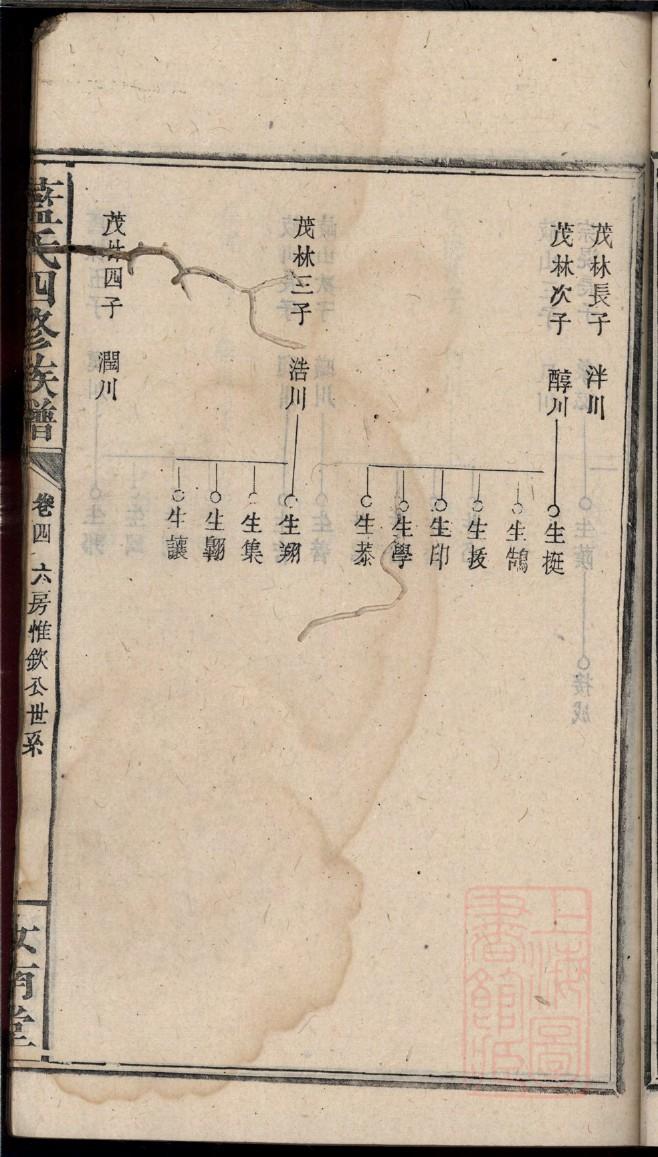 茂林長子 泮川
茂林次子 醇川
生挺
生鵠
生扳
生印
生學
生菾
茂林三子 浩川
生翔
生集
生翾
生讓
茂林四子 潤川
藍氏四修族譜
卷四 六房惟欽公世系
汝南堂
上海圖書館藏